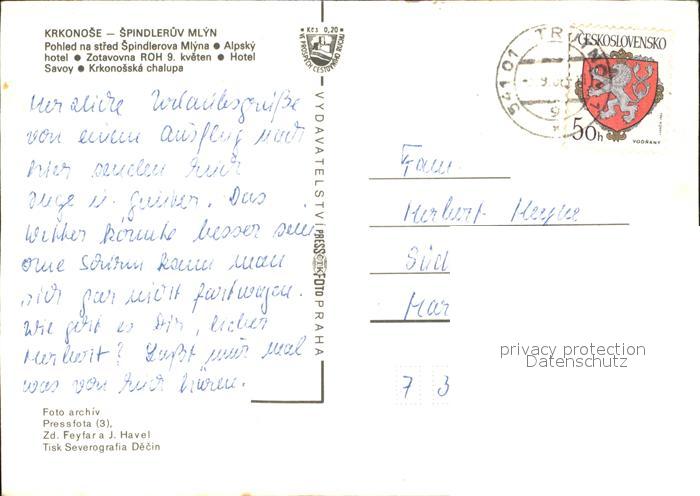 KRKONOŠE – ŠPINDLERŮV MLÝN
Pohled na střed Špindlerova Mlýna ● Alpský
hotel ● Zotavovna ROH 9. květen ● Hotel
Savoy ● Krkonošská chalupa
Kčs 0,20
VE PROSPĚCH CESTOVNÍHO RUCHU
Herzliche Urlaubsgrüße
von einem Ausflug nach
hier senden Euch
Inge u. Günter. Das
Wetter könnte besser sein
one Schirm kann man
sich gar nicht fortwagen.
Wie geht es Dir, lieber
Herbert? Laßt mir mal
was von Euch hören.
Foto archív
Pressfota (3),
Zd. Feyfar a J. Havel
Tisk Severografia Děčín
VYDAVATELSTVÍ PRESSFOTO PRAHA
541 01 TRUTNOV
ČESKOSLOVENSKO
50h
VODŇANY
Fam.
Herbert Heyne
Süd
Har
7 3
privacy protection
Datenschutz